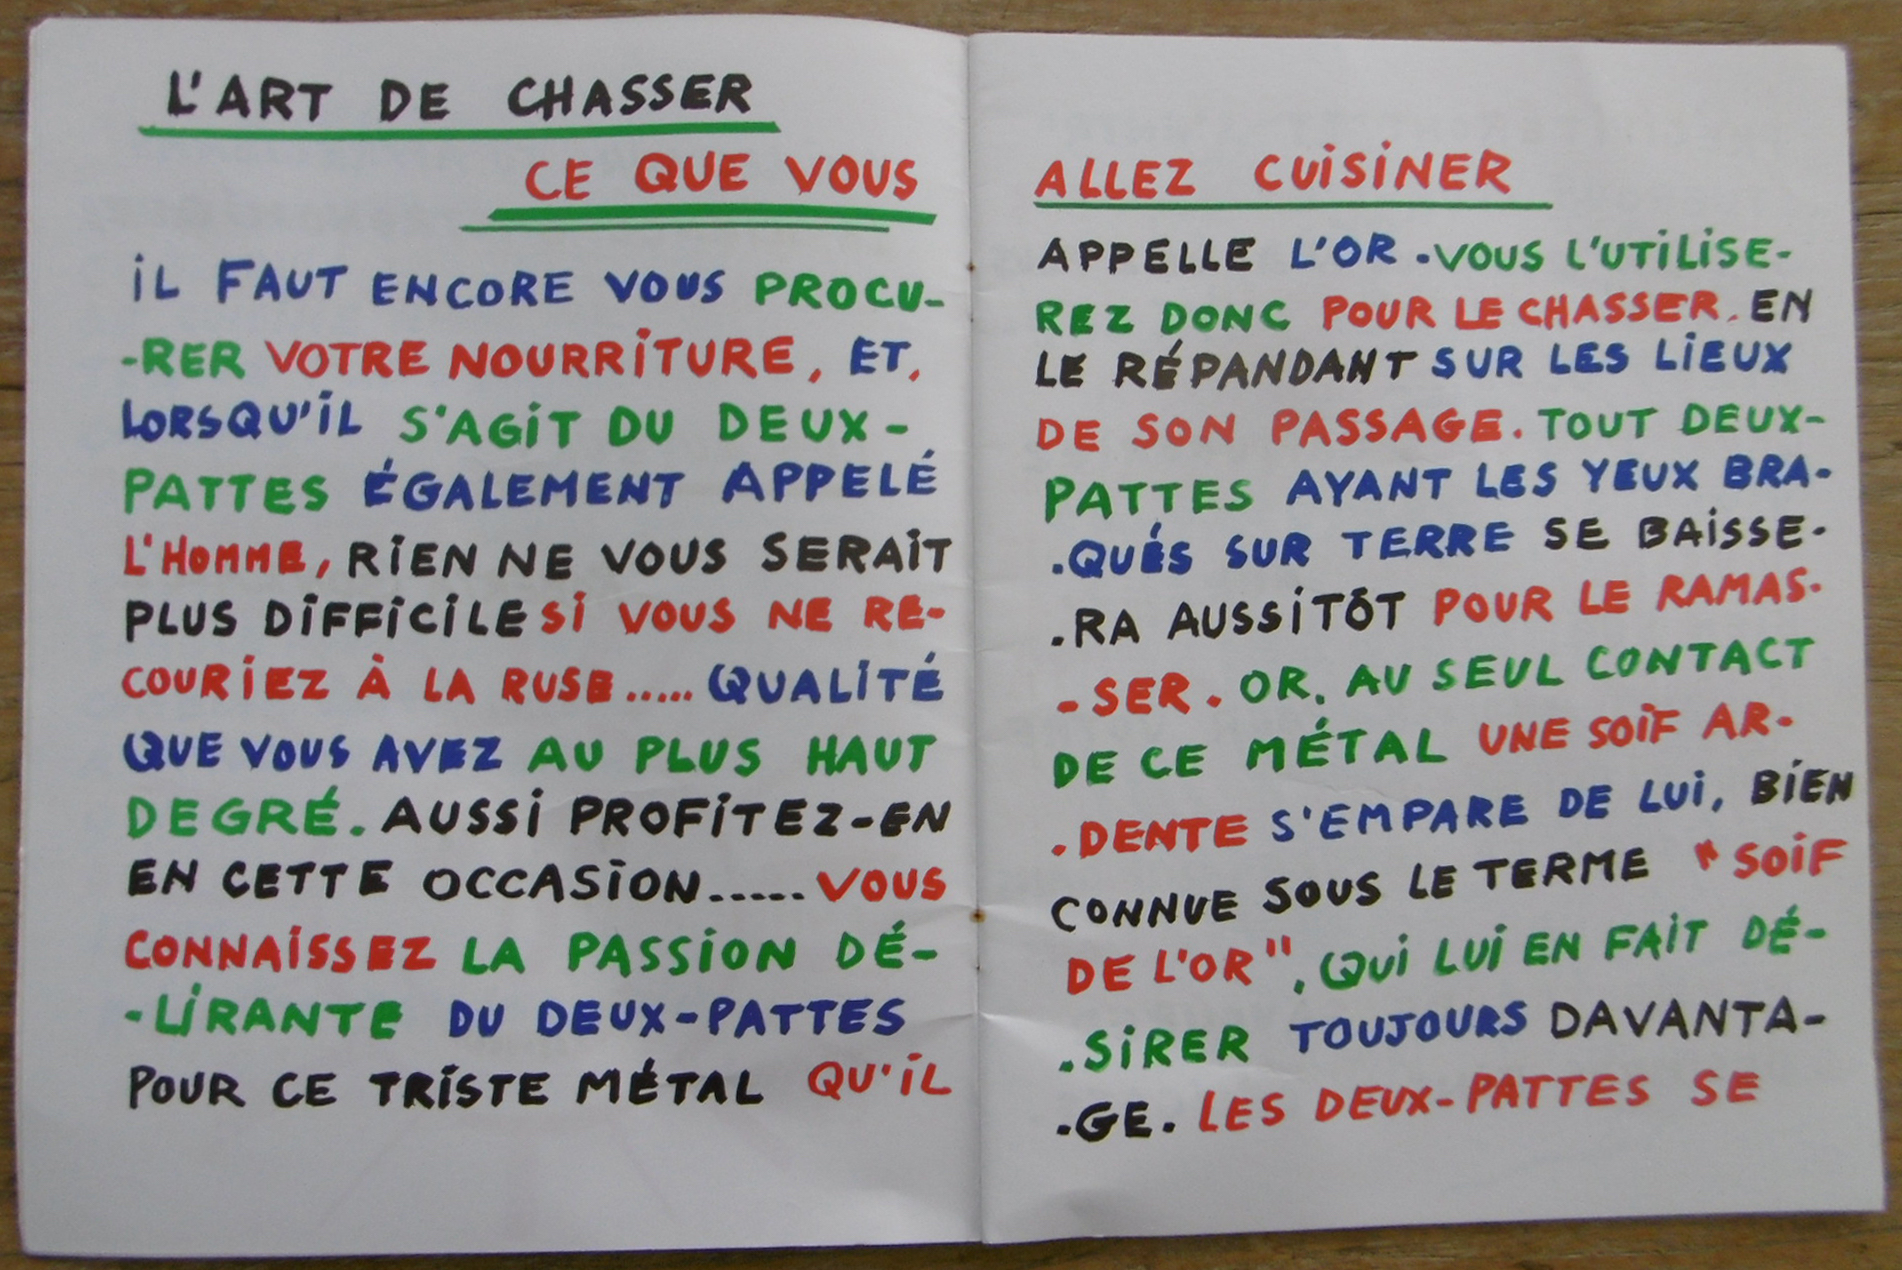 L'ART DE CHASSER
CE QUE VOUS
iL FAUT ENCORE VOUS PROCU-
-RER VOTRE NOURRiTURE, ET,
LORSQU'iL S'AGiT DU DEUX-
PATTES ÉGALEMENT APPELÉ
L'HOMME, RiEN NE VOUS SERAiT
PLUS DiFFiCiLE Si VOUS NE RE-
COURiEZ À LA RUSE..... QUALiTÉ
QUE VOUS AVEZ AU PLUS HAUT
DEGRÉ. AUSSi PROFiTEZ-EN
EN CETTE OCCASiON...... VOUS
CONNAiSSEZ LA PASSiON DÉ-
-LiRANTE DU DEUX-PATTES
POUR CE TRiSTE MÉTAL QU'iL
ALLEZ CUiSiNER
APPELLE L'OR. VOUS L'UTiLiSE-
REZ DONC POUR LE CHASSER. EN
LE RÉPANDANT SUR LES LiEUX
DE SON PASSAGE. TOUT DEUX-
PATTES AYANT LES YEUX BRA-
-QUÉS SUR TERRE SE BAiSSE-
-RA AUSSiTÔT POUR LE RAMAS-
-SER. OR, AU SEUL CONTACT
DE CE MÉTAL UNE SOiF AR-
-DENTE S'EMPARE DE LUi, BiEN
CONNUE SOUS LE TERME "SOiF
DE L'OR", QUi LUi EN FAiT DÉ-
-SiRER TOUJOURS DAVANTA-
-GE. LES DEUX-PATTES SE